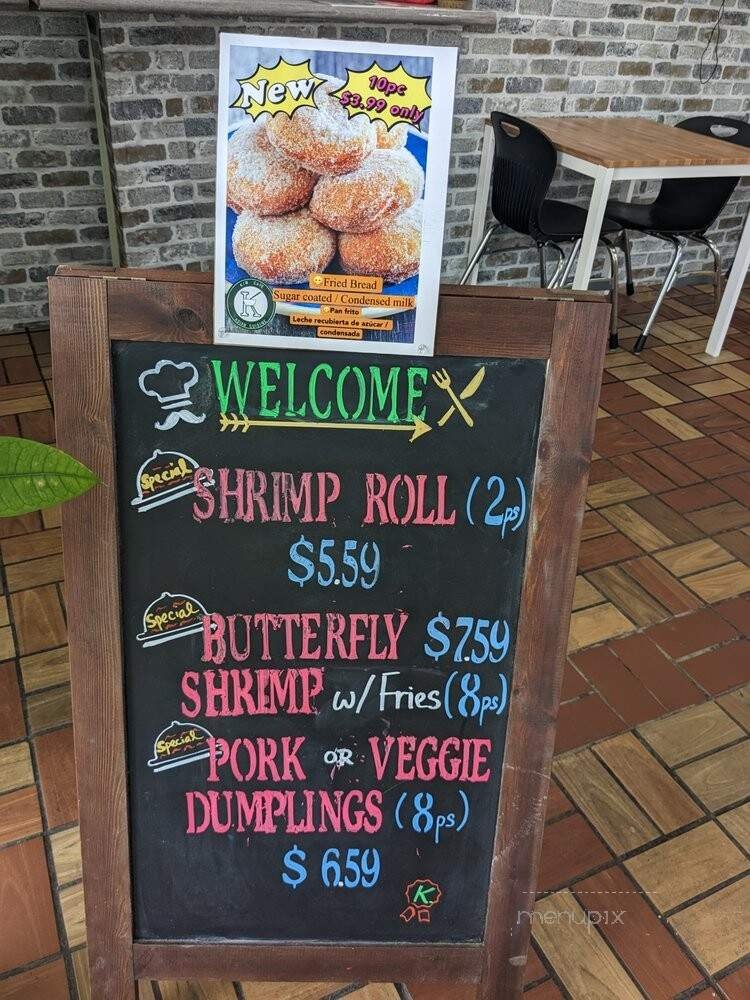 New
10pc
$3.99 only
Fried Bread
Sugar coated / Condensed milk
Pan frito
Leche recubierta de azúcar /
condensada
K
WELCOME
Special
SHRIMP ROLL (2ps)
$5.59
Special
BUTTERFLY $7.59
SHRIMP w/ Fries (8ps)
Special
PORK OR VEGGIE
DUMPLINGS (8ps)
$6.59
K
menupix